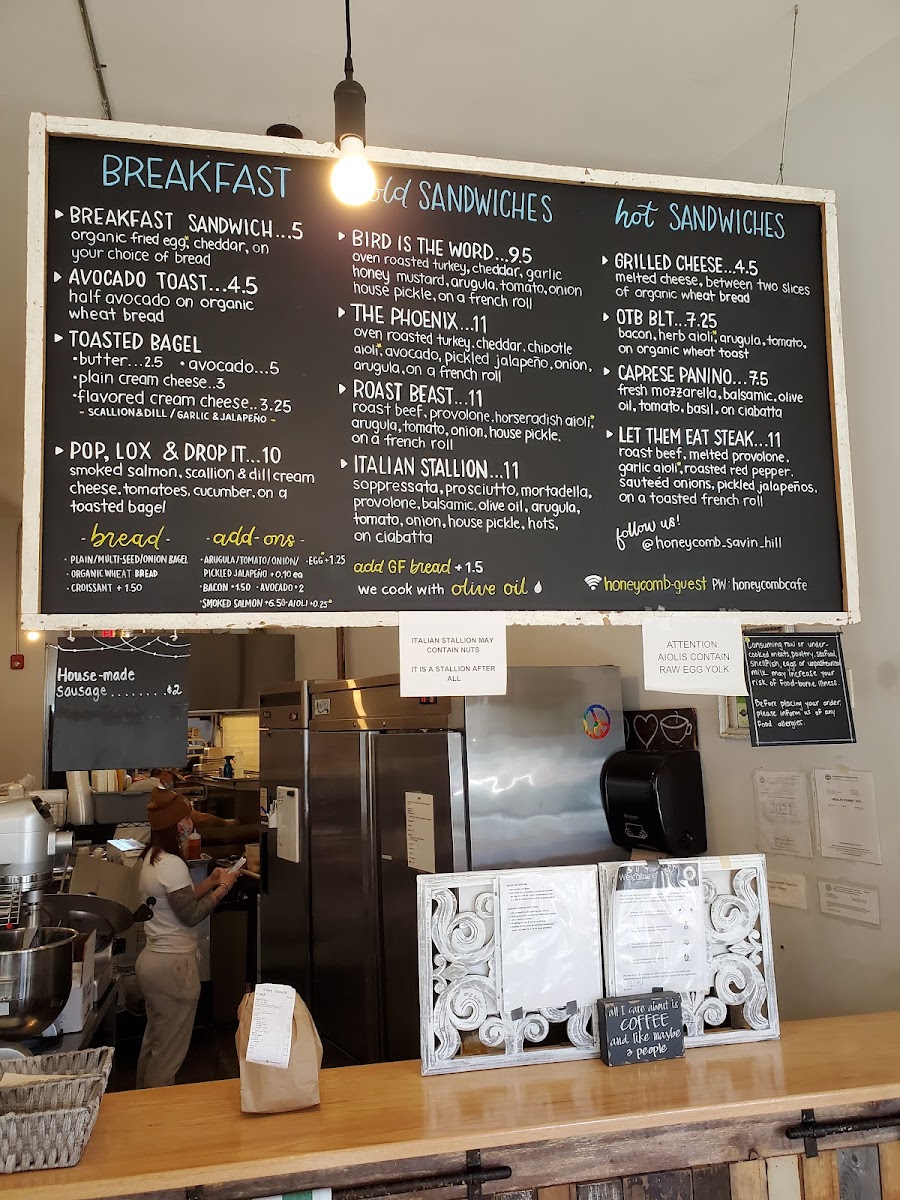 BREAKFAST
▸ BREAKFAST SANDWICH...5
organic fried egg*, cheddar, on
your choice of bread
▸ AVOCADO TOAST...4.5
half avocado on organic
wheat bread
▸ TOASTED BAGEL
•butter...2.5 •avocado...5
•plain cream cheese..3
•flavored cream cheese..3.25
- SCALLION & DILL / GARLIC & JALAPEÑO -
▸ POP, LOX & DROP IT...10
smoked salmon, scallion & dill cream
cheese, tomatoes, cucumber, on a
toasted bagel
-bread-
• PLAIN/MULTI-SEED/ONION BAGEL
• ORGANIC WHEAT BREAD
• CROISSANT + 1.50
-add-ons-
• ARUGULA/TOMATO/ONION/ •EGG* +1.25
PICKLED JALAPEÑO +0.10 ea
•BACON +1.50 •AVOCADO +2
•SMOKED SALMON +6.50 •AIOLI +0.25*
cold SANDWICHES
▸ BIRD IS THE WORD...9.5
oven roasted turkey, cheddar, garlic
honey mustard, arugula, tomato, onion
house pickle, on a french roll
▸ THE PHOENIX...11
oven roasted turkey, cheddar, chipotle
aioli*, avocado, pickled jalapeño, onion,
arugula, on a french roll
▸ ROAST BEAST...11
roast beef, provolone, horseradish aioli*,
arugula, tomato, onion, house pickle,
on a french roll
▸ ITALIAN STALLION...11
soppressata, prosciutto, mortadella,
provolone, balsamic, olive oil, arugula,
tomato, onion, house pickle, hots,
on ciabatta
add GF bread + 1.5
we cook with olive oil
hot SANDWICHES
▸ GRILLED CHEESE...4.5
melted cheese, between two slices
of organic wheat bread
▸ OTB BLT...7.25
bacon, herb aioli*, arugula, tomato,
on organic wheat toast
▸ CAPRESE PANINO...7.5
fresh mozzarella, balsamic, olive
oil, tomato, basil, on ciabatta
▸ LET THEM EAT STEAK...11
roast beef, melted provolone,
garlic aioli*, roasted red pepper,
sauteéd onions, pickled jalapeños,
on a toasted french roll
follow us!
@honeycomb_savin_hill
honeycomb-guest PW: honeycombcafe
ITALIAN STALLION MAY
CONTAIN NUTS
IT IS A STALLION AFTER
ALL
ATTENTION
AIOLIS CONTAIN
RAW EGG YOLK
Consuming raw or under-
cooked meats, poultry, seafood,
shellfish, eggs or unpasteurized
milk may increase your
risk of food-borne illness.
Before placing your order,
please inform us of any
food allergies.
House-made
sausage.........$2
Welcome
all I care about is
COFFEE
and like maybe
3 people